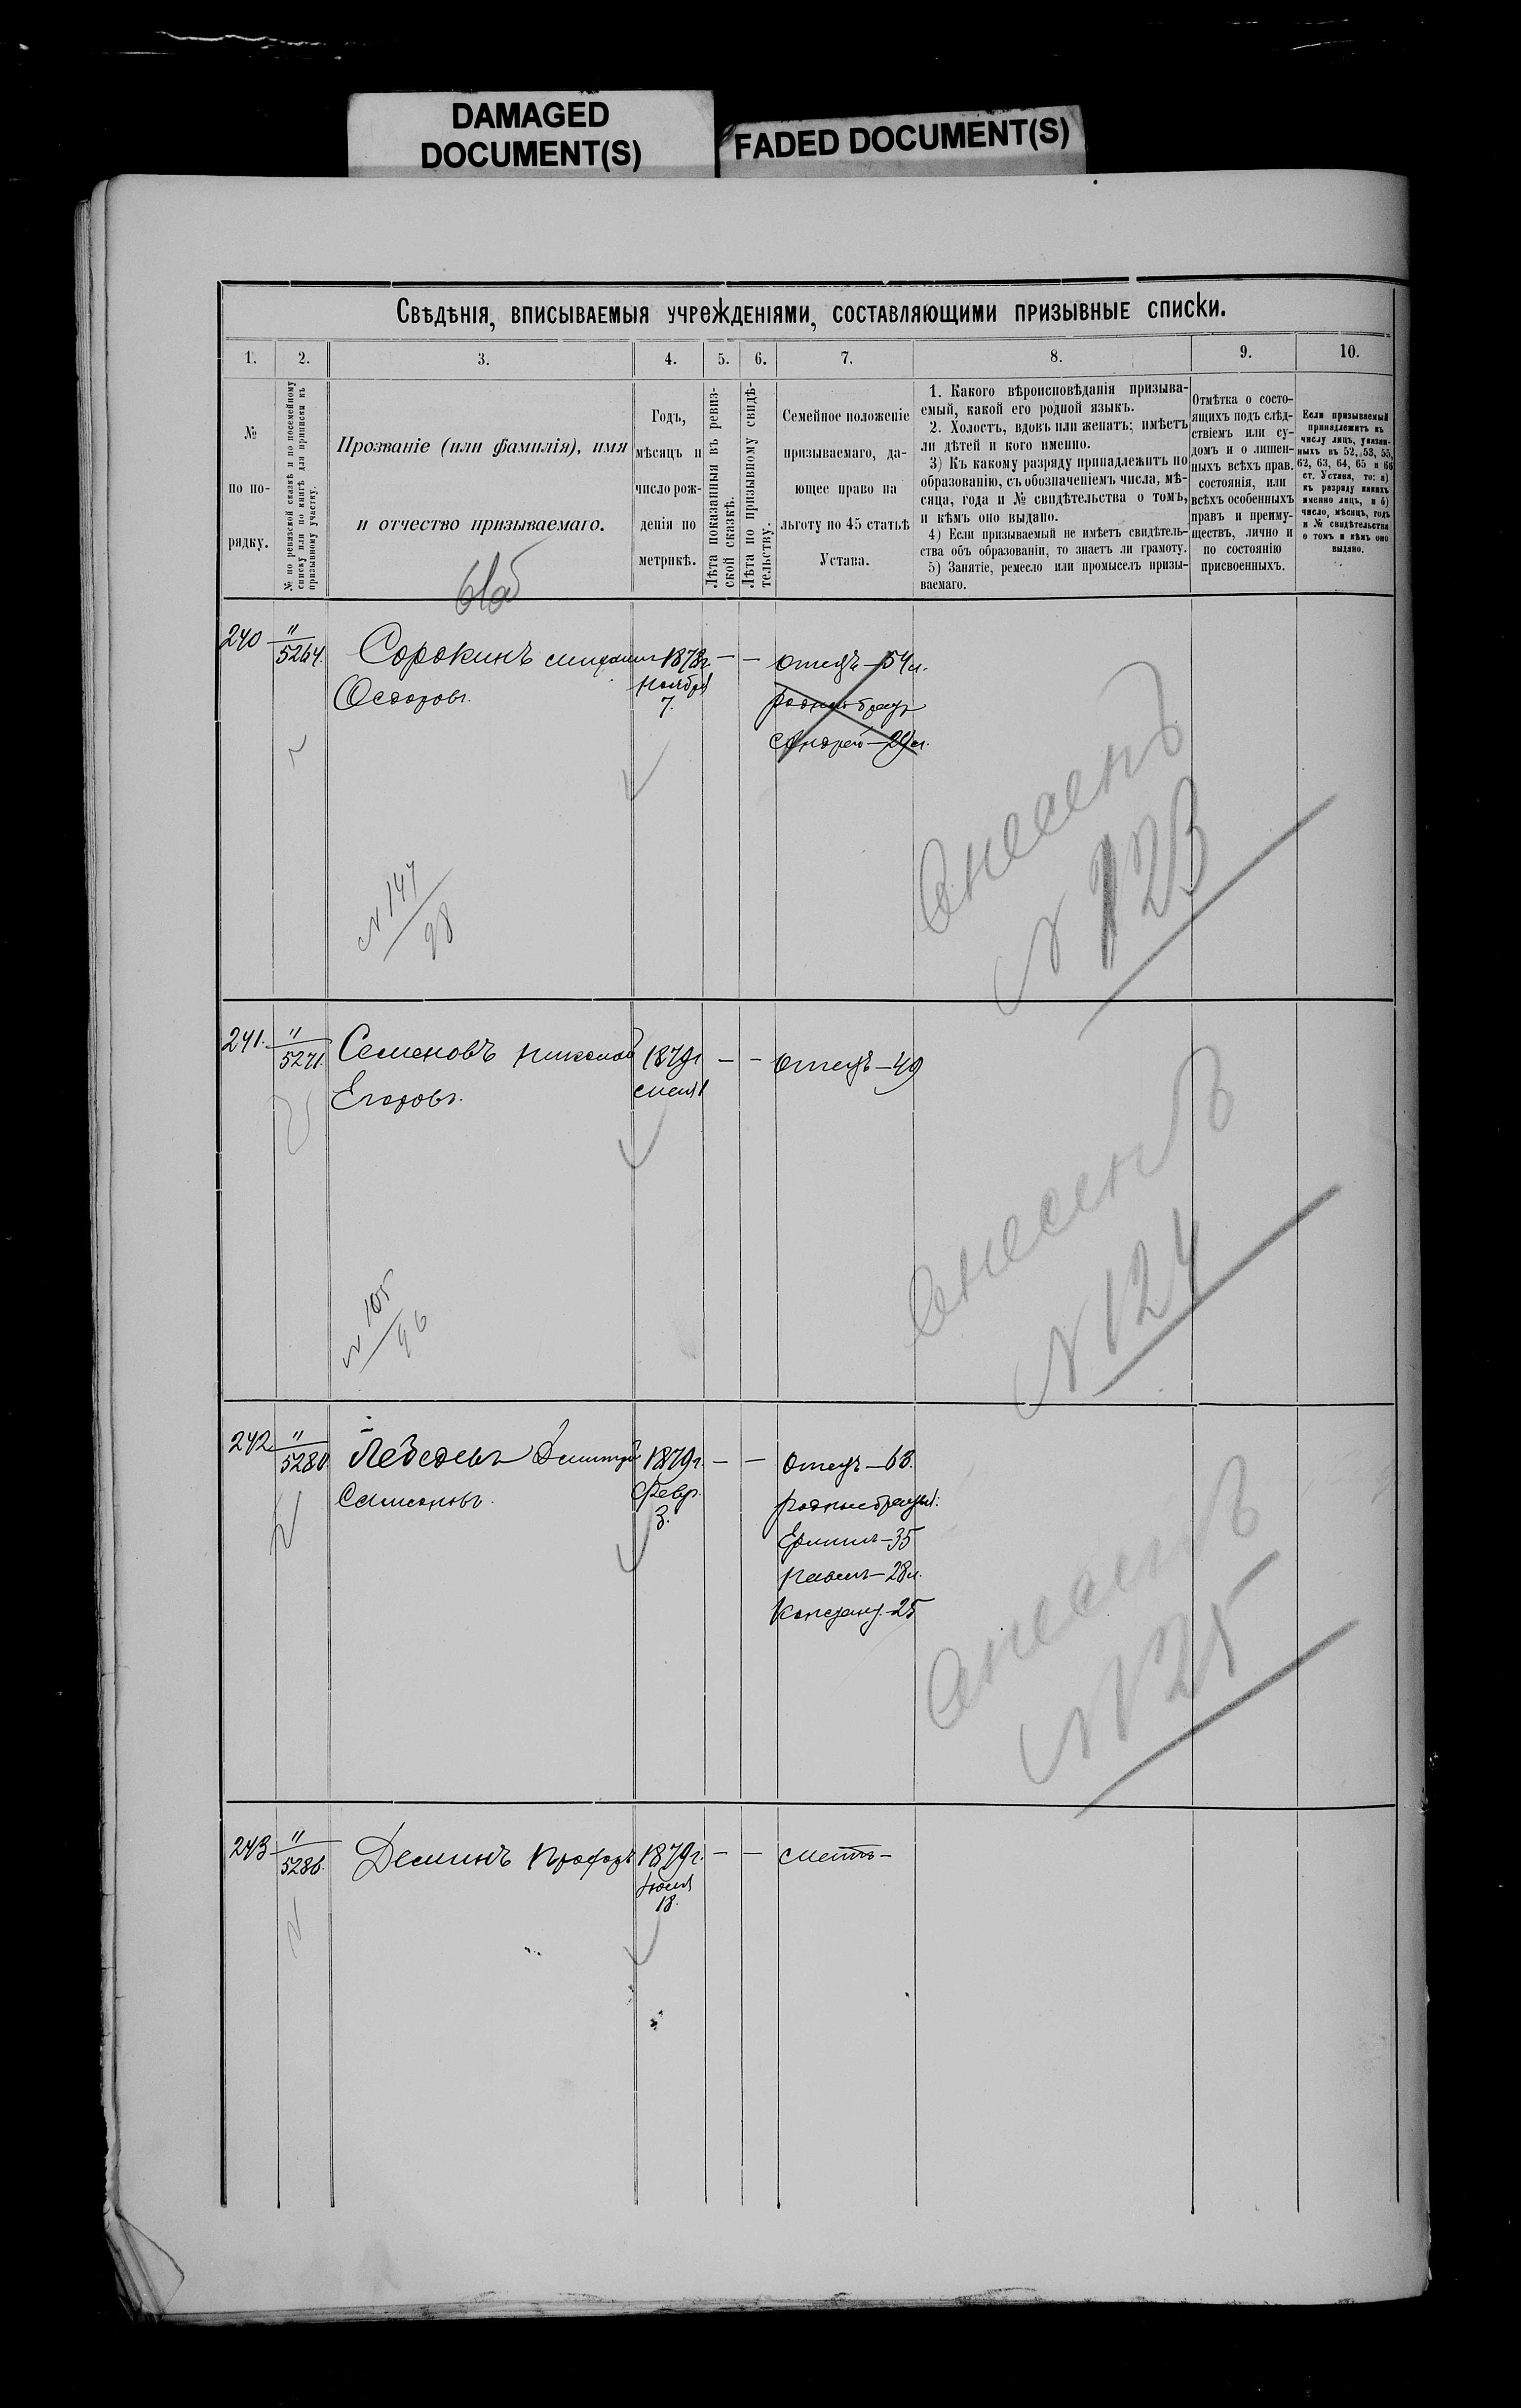 DAMAGED
DOCUMENT(S)
FADED DOCUMENT(S)
Свѣдѣнія, вписываемыя учрежденіями, составляющими призывные списки.
1.
2.
3.
4.
5.
6.
7.
8.
9.
10.
№
по по-
рядку.
№ по ревизской сказкѣ и по посемейному
списку или по книгѣ для приписки къ
призывному участку.
Прозваніе (или фамилія), имя
и отчество призываемаго.
Годъ,
мѣсяцъ и
число рож-
денія по
метрикѣ.
Лѣта показанныя въ ревиз-
ской сказкѣ.
Лѣта по призывному свидѣ-
тельству.
Семейное положеніе
призываемаго, да-
ющее право на
льготу по 45 статьѣ
Устава.
1. Какого вѣроисповѣданія призыва-
емый, какой его родной языкъ.
2. Холостъ, вдовъ или женатъ; имѣетъ
ли дѣтей и кого именно.
3) Къ какому разряду принадлежитъ по
образованію, съ обозначеніемъ числа, мѣ-
сяца, года и № свидѣтельства о томъ,
и кѣмъ оно выдано.
4) Если призываемый не имѣетъ свидѣтель-
ства объ образованіи, то знаетъ ли грамоту.
5) Занятіе, ремесло или промыселъ призы-
ваемаго.
Отмѣтка о состо-
ящихъ подъ слѣд-
ствіемъ или су-
домъ и о лишен-
ныхъ всѣхъ прав.
состоянія, или
всѣхъ особенныхъ
правъ и преиму-
ществъ, лично и
по состоянію
присвоенныхъ.
Если призываемый
принадлежитъ къ
числу лицъ, указан-
ныхъ въ 52, 53, 55,
62, 63, 64, 65 и 66
ст. Устава, то: а)
къ разряду какихъ
именно лицъ, и б)
число, мѣсяцъ, годъ
и № свидѣтельства
о томъ и кѣмъ оно
выдано.
240
"
5264.
Сорокинъ 1878г. — — отецъ — 54 л.
Федоровъ.
ноября
7.
родной братъ
Андрей — 29 л.
N 147
98
Внесенъ
N 123
241.
"
5271.
Семеновъ Николай 1879г. — — отецъ — 49
Егоровъ.
N 105
96
Внесенъ
N 124
242
"
5280.
Лебедевъ Дмитрій 1879г. — — отецъ — 63.
Самсоновъ.
Февр.
3.
родные братья:
Ермилъ — 35
Павелъ — 28 л.
Констант. — 25
Внесенъ
N 125
243
"
5286.
Деминъ 1879г. — —
Іюля
18.